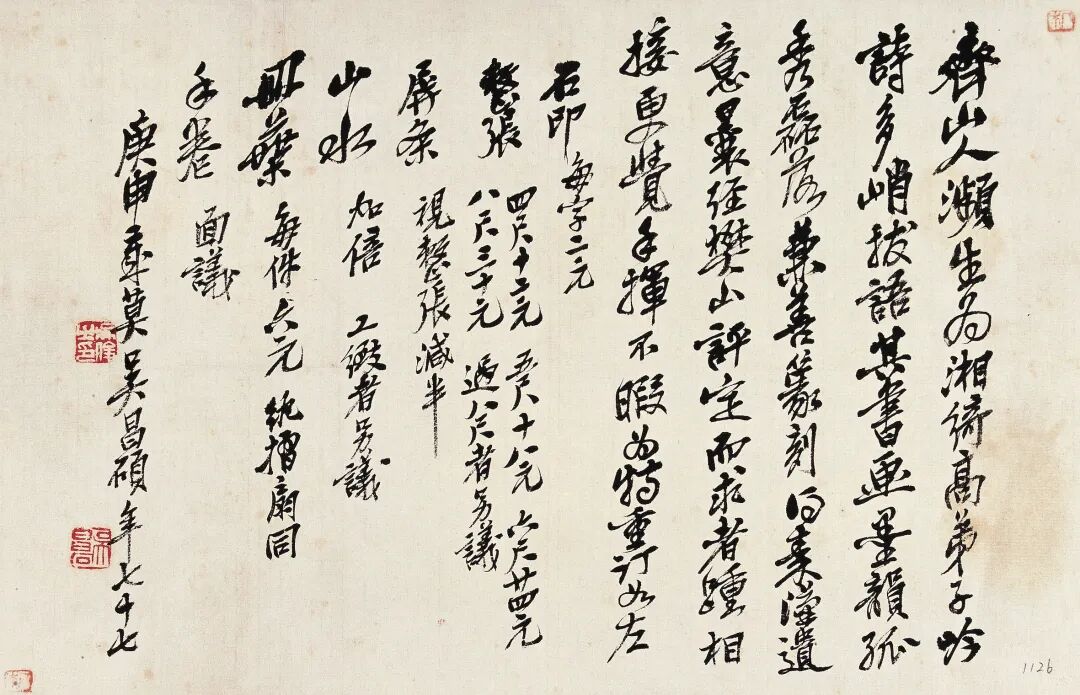 齊山人瀕生為湘綺高弟子吟
詩多峭拔語其書畫墨韻孤
秀磊落兼善篆刻得秦漢遺
意曩經樊山評定而求者踵相
接更覺手揮不暇為特重訂如左
石印 每字二元
整張 四尺十二元 五尺十八元 六尺廿四元
八尺三十元 過八尺者另議
屏条 視整張減半
山水 加倍 工緻者另議
冊葉 每件六元 紈摺扇同
手卷 面議
庚申歲莫吳昌碩年七十七
1126